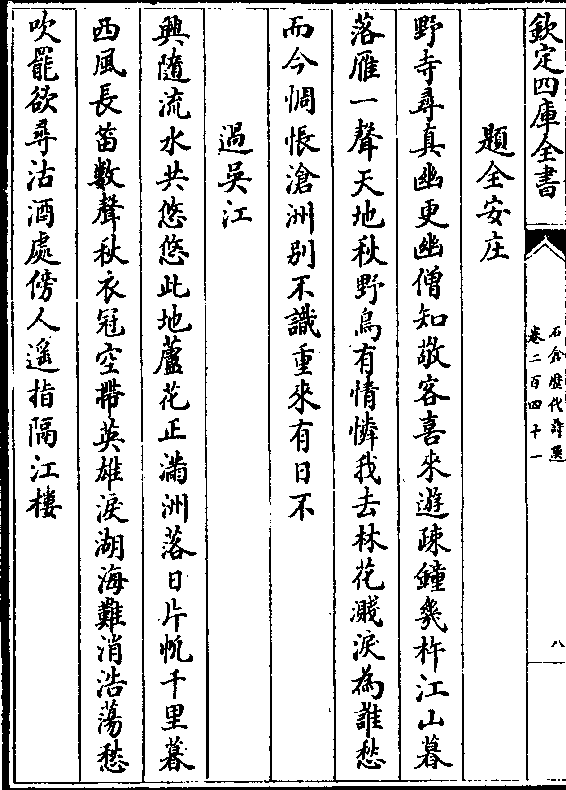 欽定四庫全書
石倉歷代詩選
卷二百四十一
八
題全安庄
野寺尋真幽更幽僧知敬客喜來遊疎鐘幾杵江山暮
落雁一聲天地秋野鳥有情憐我去林花濺淚為誰愁
而今惆悵滄洲別不識重來有日不
過吳江
興隨流水共悠悠此地蘆花正滿洲落日片帆千里暮
西風長笛數聲秋衣冠空帶英雄淚湖海難消浩蕩愁
吹罷欲尋沽酒處傍人遙指隔江樓